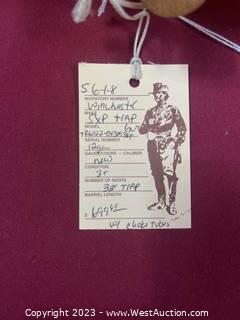 561-8
INVENTORY NUMBER
Winchester
MAKE
SXP TRAP
MODEL
SERIAL NUMBER
12ga
GAUGE/CHOKE - CALIBER
new
CONDITION
3+
NUMBER OF SHOTS
32" TRAP
BARREL LENGTH
$ 699.00
w/ choke tubes
Copyright 2023 - www.WestAuction.com